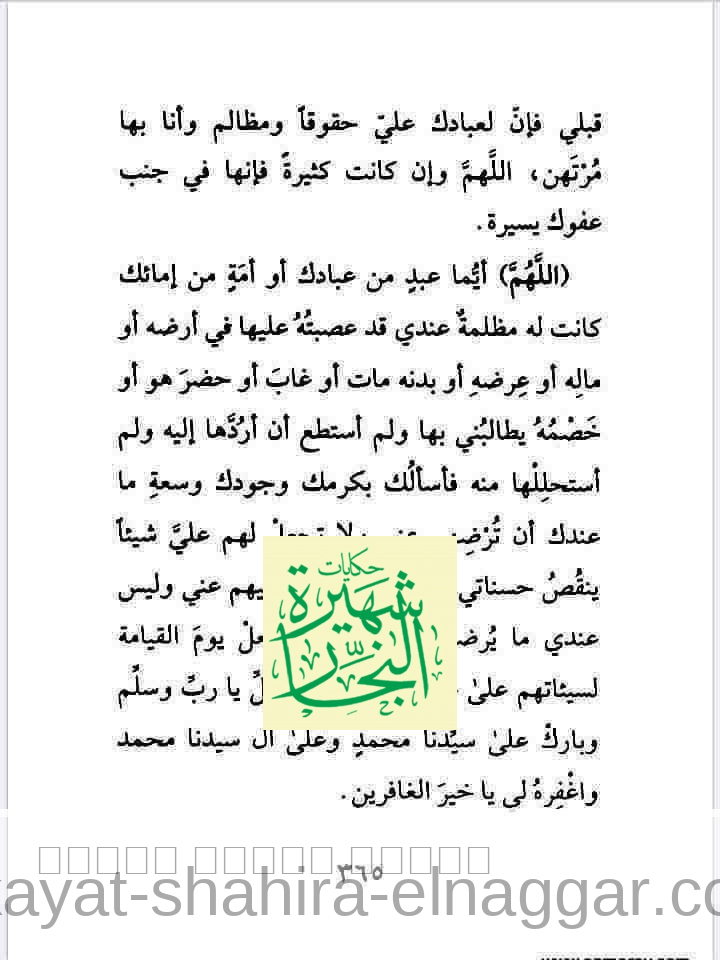 قبلي فإنّ لعبادك عليّ حقوقاً ومظالم وأنا بها
مُرْتَهن، اللَّهمَّ وإن كانت كثيرةً فإنها في جنب
عفوك يسيرة.
(اللَّهُمَّ) أيُّما عبدٍ من عبادك أو أمَةٍ من إمائك
كانت له مظلمةٌ عندي قد عصبتُهُ عليها في أرضه أو
مالِه أو عِرضهِ أو بدنه مات أو غابَ أو حضرَ هو أو
خَصْمُهُ يطالبُني بها ولم أستطع أن أرُدَّها إليه ولم
أستحلِلْها منه فأسألُك بكرمك وجودك وسعةِ ما
عندك أن لهم عليَّ شيئاً
ينقُصُ حسناتي عني وليس
عندي ما يومَ القيامة
لسيئاتهم علىٰ يا ربِّ وسلِّم
وباركْ علىٰ سيِّدنا محمدٍ وعلىٰ آل سيدنا محمد
واغْفِرهُ لي يا خيرَ الغافرين.
حكايات
شهيرة
النجار
٣٦٥
kayat-shahira-elnaggar.co